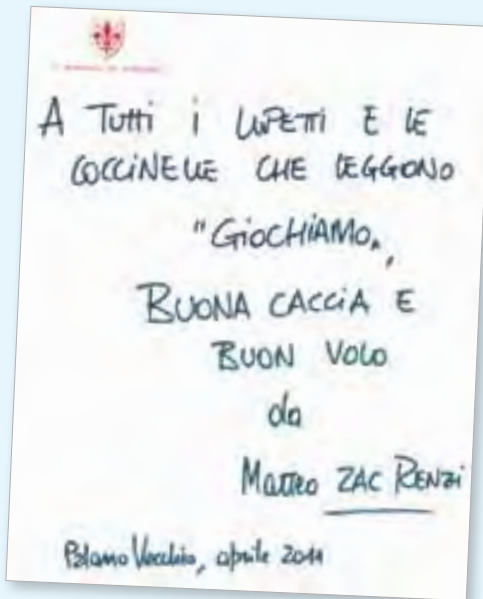 A TUTTI i LUPETTI E LE
COCCINELLE CHE LEGGONO
"GIOCHIAMO",
BUONA CACCIA E
BUON VOLO
da
Matteo ZAC RENZI
Palazzo Vecchio, aprile 2011